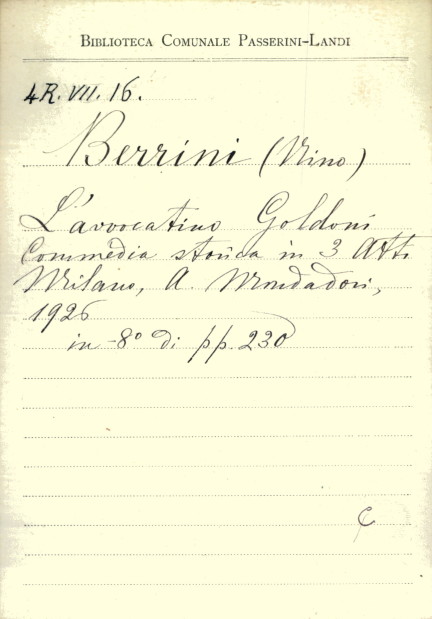 BIBLIOTECA COMUNALE PASSERINI-LANDI
4R. VII. 16.
Berrini (Nino)
L'avvocatino Goldoni
Commedia storica in 3 Atti
Milano, A. Mondadori,
1926
in-8° di pp. 230
C